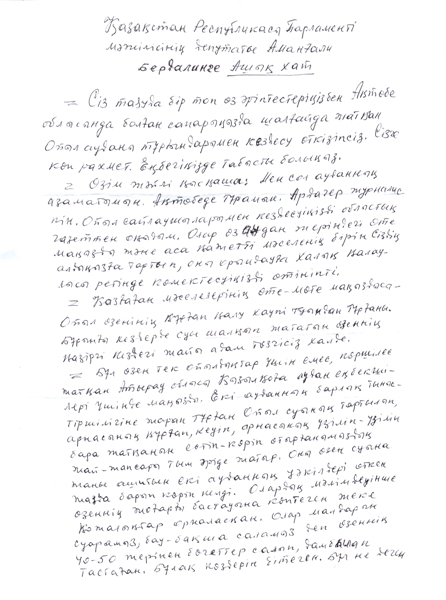 Қазақстан Республикасы Парламенті
мәжілісінің депутаты Аманғали
Бердалинге Ашық хат
= Сіз таяуда бір топ өз әріптестеріңізбен Ақтөбе
облысында болған сапарыңызда шалғайда жатқан
Ойыл ауданы тұрғындарымен кездесу өткізіпсіз. Сізге
көп рахмет. Еңбегіңізде табысты болыңыз.
= Өзім жайлы қысқаша: Мен сол ауданның
азаматымын. Ақтөбеде тұрамын. Ардагер журналис
пін. Ойыл сайлаушыларымен кездесуіңізді облыстық
газеттен оқыдым. Олар өз аудан жеріндегі өте
маңызды және аса қажетті мәселенің бірін Сіздің
алдыңызға тартып, оны орындауға халық қалау-
лысы ретінде көмектесуіңізді өтініпті.
= Қозғаған мәселелерінің өте-мөте маңыздысы-
Ойыл өзенінің құрғап қалу қаупі туындап тұрғаны.
Бұрынғы кездерде суы шалқып жататын өзеннің
қазіргі кездегі жайы адам төзгісіз халде.
= Бұл өзен тек ойылдықтар үшін емес, көршілес
жатқан Атырау облысы Қызылқоға ауданы еңбекші-
лері үшін де маңызды. Екі ауданның барлық тыныс-
тіршілігіне жарап тұрған Ойыл суының тартылып,
арнасының құрғап, кеуіп, арнасының үзіліп-үзіліп
бара жатқанын естіп-көріп отырғанымыздың
жай-жапсары тым әріде жатыр. Оны өзен суына
жаны ашитын екі ауданның уәкілдері өткен
жазда барып көріп келді. Олардың мәлімдеуінше
өзеннің жоғарғы бастауына көптеген жеке
қожалықтар орналасқан. Олар малдарын
суарамыз, бау-бақша саламыз деп өзеннің
40-50 жерінен бөгеттер салып,
тастаған. Бұлақ көздерін бітеген. Бұл не деген